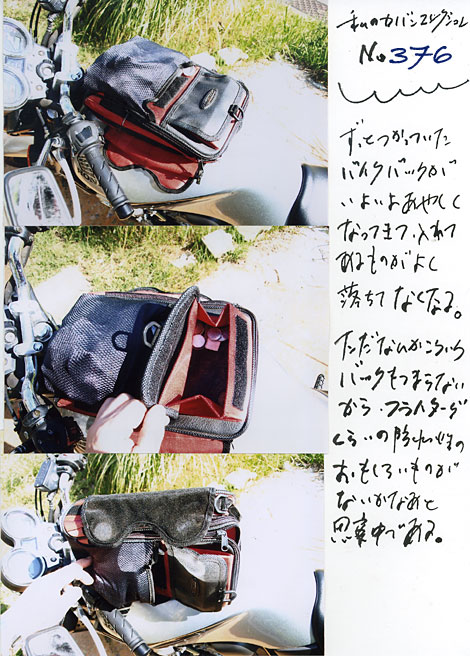 私のカバンコレクション
No.376
ずっとつかっていた
バイクバックが
いよいよあやしく
なってきて、入れて
あるものがよく
落ちてなくなる。
ただなんかこういう
バックもつまらない
から、フライターグ
くらいの防水性の
おもしろいものが
ないかなあと
思案中である。